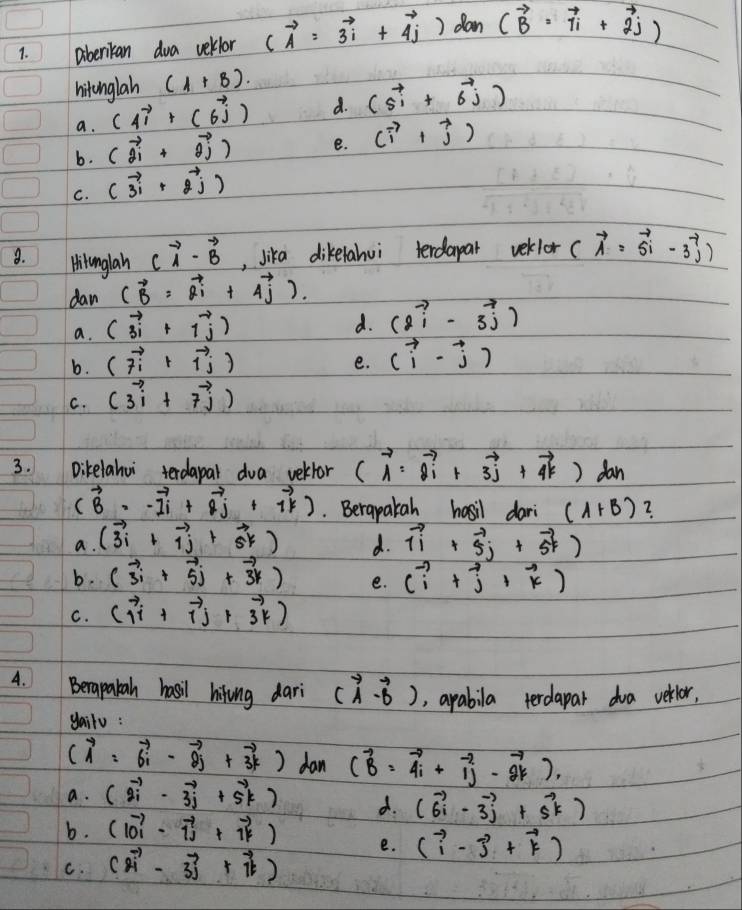 1. Diberikan dua vektor (A⃗ = 3i⃗ + 4j⃗) dan (B⃗ = 1i⃗ + 2j⃗)
hitunglah (A + B).
a. (4i⃗ + (6j⃗) d. (5i⃗ + 6j⃗)
b. (2i⃗ + 2j⃗) e. (i⃗ + j⃗)
c. (3i⃗ + 2j⃗)
2. Hitunglah (A⃗ - B⃗, Jika diketahui terdapat vektor (A⃗ = 5i⃗ - 3j⃗)
dan (B⃗ = 2i⃗ + 4j⃗).
a. (3i⃗ + 1j⃗) d. (2i⃗ - 3j⃗)
b. (7i⃗ + 1j⃗) e. (i⃗ - j⃗)
c. (3i⃗ + 7j⃗)
3. Diketahui terdapat dua vektor (A⃗ = 2i⃗ + 3j⃗ + 4k⃗) dan
(B⃗ = -1i⃗ + 2j⃗ + 1k⃗). Berapakah hasil dari (A+B)?
a. (3i⃗ + 1j⃗ + 5k⃗) d. 1i⃗ + 5j⃗ + 5k⃗)
b. (3i⃗ + 5j⃗ + 3k⃗) e. (i⃗ + j⃗ + k⃗)
c. (1i⃗ + 1j⃗ + 3k⃗)
4. Berapakah hasil hitung dari (A⃗-B⃗), apabila terdapat dua vektor,
yaitu :
(A⃗ = 6i⃗ - 2j⃗ + 3k⃗) dan (B⃗ = 4i⃗ + 1j⃗ - 2k⃗).
a. (2i⃗ - 3j⃗ + 5k⃗) d. (6i⃗ - 3j⃗ + 5k⃗)
b. (10i⃗ - 1j⃗ + 1k⃗) e. (i⃗ - j⃗ + k⃗)
c. (2i⃗ - 3j⃗ + 1k⃗)